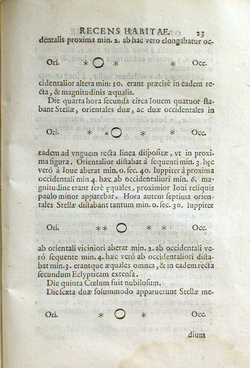 RECENS HABITAE. 23
dentalis proxima min. 2. ab hac vero elongabatur oc-
Ori. * O * * Occ.
cidentalior altera min: 10. erant præcisè in eadem re-
cta, & magnitudinis æqualis.
Die quarta hora secunda circa Iouem quatuor sta-
bant Stellæ, orientales duæ, ac duæ occidentales in
Ori. * * O * * Occ.
eadem ad vnguem recta linea dispositæ, vt in proxi-
ma figura. Orientalior distabat à sequenti min. 3. hæc
verò à Ioue aberat min. 0. sec. 40. Iuppiter à proxima
occidentali min. 4. hæc ab occidentaliori min. 6. ma-
gnitudine erant ferè æquales, proximior Ioui reliquis
paulo minor apparebat. Hora autem septima orien-
tales Stellæ distabant tantum min. 0. sec. 30. Iuppiter
Ori. ** O * * Occ.
ab orientali viciniori aberat min. 2. ab occidentali ve-
rò sequente min. 4. hæc verò ab occidentaliori dista-
bat min. 3. erantque æquales omnes, & in eadem recta
secundum Eclypticam extensa.
Die quinta Cœlum fuit nubilosum.
Die sexta duæ solummodo apparuerunt Stellæ me-
Ori. * O * Occ.
dium